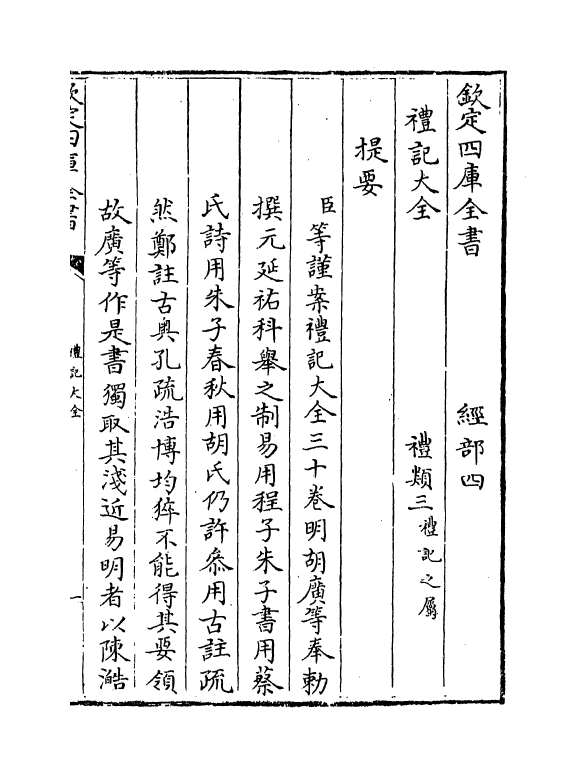 欽定四庫全書　經部四
禮記大全　禮類三禮記之屬
提要
臣等謹案禮記大全三十卷明胡廣等奉勅
撰元延祐科舉之制易用程子朱子書用蔡
氏詩用朱子春秋用胡氏仍許叅用古註疏
然鄭註古奧孔疏浩博均猝不能得其要領
故廣等作是書獨取其淺近易明者以陳澔
欽定四庫全書
禮記大全
一